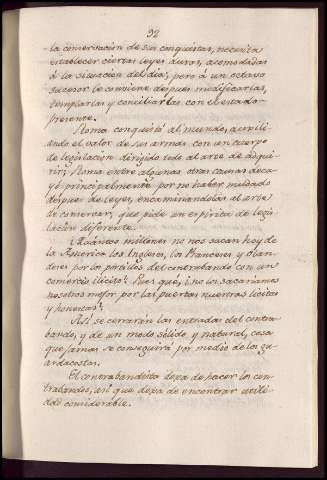 92
la conservacion de sus conquistas, necesita
establecer ciertas leyes duras, acomodadas
á la situacion del dia; pero á un octavo
sucesor le conviene despues modificarlas,
templarlas y conciliarlas con el estado
presente.
Roma conquistó al mundo, auxili-
ando el valor de sus armas con un cuerpo
de legislacion dirigido todo al arte de adqui-
rir; Roma entre algunas otras causas deca-
yó principalmente por no haber mudado
despues de leyes, encaminandolas al arte
de conservar, que pide un espiritu de legis-
lacion diferente.
¿Quántos millones no nos sacan hoy de
la America los Ingleses, los Franceses y Olan-
deses por los portillos del contrabando con un
comercio ilicito? Pues que, ¿no los sacariamos
nosotros mejor por las puertas nuestras licitas
y honrosas?
Asi se cerrarán las entradas del contra-
bando, y de un modo sólido y natural, cosa
que jamas se conseguirá por medio de los gu-
ardacostas.
El contrabandista dexa de hacer los con-
trabandos, asi que dexa de encontrar utili-
dad considerable.